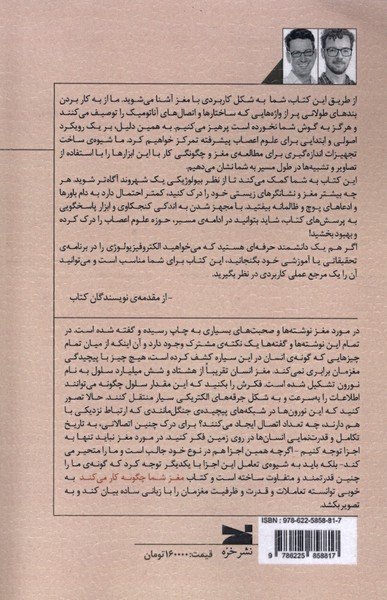 از طریق این کتاب، شما به شکل کاربردی با مغز آشنا می‌شوید. ما از به کار بردن
بندهای طولانی پر از واژه‌هایی که ساختارها و اتصال‌های آناتومیک را توصیف می‌کنند
و هرگز به گوش شما نخورده است پرهیز می‌کنیم. به همین دلیل، بر یک رویکرد
اصولی و ابتدایی برای علوم اعصاب پیشرفته تمرکز خواهیم کرد. ما شیوه‌ی ساخت
تجهیزات اندازه‌گیری برای مطالعه‌ی مغز و چگونگی کار با این ابزارها را با استفاده از
تصاویر و تشبیه‌ها در طول مسیر به شما نشان می‌دهیم.
این کتاب به شما کمک می‌کند تا از نظر بیولوژیکی یک شهروند آگاه‌تر شوید. هر
چه بیشتر مغز و نشانگرهای زیستی خود را درک کنید، کمتر احتمال دارد به دام باورها
و ادعاهای پوچ و ظالمانه بیفتید. با مجهز شدن به اندکی کنجکاوی و ابزار پاسخگویی
به پرسش‌های کتاب، شاید بتوانید در ادامه‌ی مسیر، حوزه علوم اعصاب را درک کرده
و بهبود بخشید!
اگر هم یک دانشمند حرفه‌ای هستید که می‌خواهید الکتروفیزیولوژی را در برنامه‌ی
تحقیقاتی یا آموزشی خود بگنجانید، این کتاب برای شما مناسب است و می‌توانید
آن را یک مرجع عملی کاربردی در نظر بگیرید.
- از مقدمه‌ی نویسندگان کتاب
در مورد مغز نوشته‌ها و صحبت‌های بسیاری به چاپ رسیده و گفته شده است. در
تمام این نوشته‌ها و گفته‌ها یک نکته‌ی مشترک وجود دارد و آن اینکه از میان تمام
چیزهایی که گونه‌ی انسان در این سیاره کشف کرده است، هیچ چیز با پیچیدگی
مغزمان برابری نمی کند. مغز انسان تقریباً از هشتاد و شش میلیارد سلول به نام
نورون تشکیل شده است. فکرش را بکنید که این مقدار سلول چگونه می‌توانند
اطلاعات را به‌سرعت و به شکل جرقه‌های الکتریکی سیار منتقل کنند. حالا تصور
کنید که این نورون‌ها در شبکه‌های پیچیده‌ی جنگل‌مانندی که ارتباط نزدیکی با
هم دارند، چه تعداد اتصال ایجاد می‌کنند؟ برای درک چنین اتصالاتی، به تاریخ
تکامل و قدرت‌نمایی انسان‌ها در روی زمین فکر کنید. در مورد مغز نباید تنها به
اجزا توجه کنیم -اگرچه همین اجزا هم در نوع خود جالب است و ما را متحیر می
کند- بلکه باید به شیوه‌ی تعامل این اجزا با یکدیگر توجه کرد که گونه‌ی ما را
چنین قدرتمند و متفاوت ساخته است و کتاب مغز شما چگونه کار می‌کند به
خوبی توانسته تعاملات و قدرت و ظرفیت مغزمان را با زبانی ساده بیان کند و به
تصویر بکشد.
ISBN : 978-622-5858-81-7
9 786225 858817
نشر خزه
قیمت: ۱۶۰۰۰۰ تومان